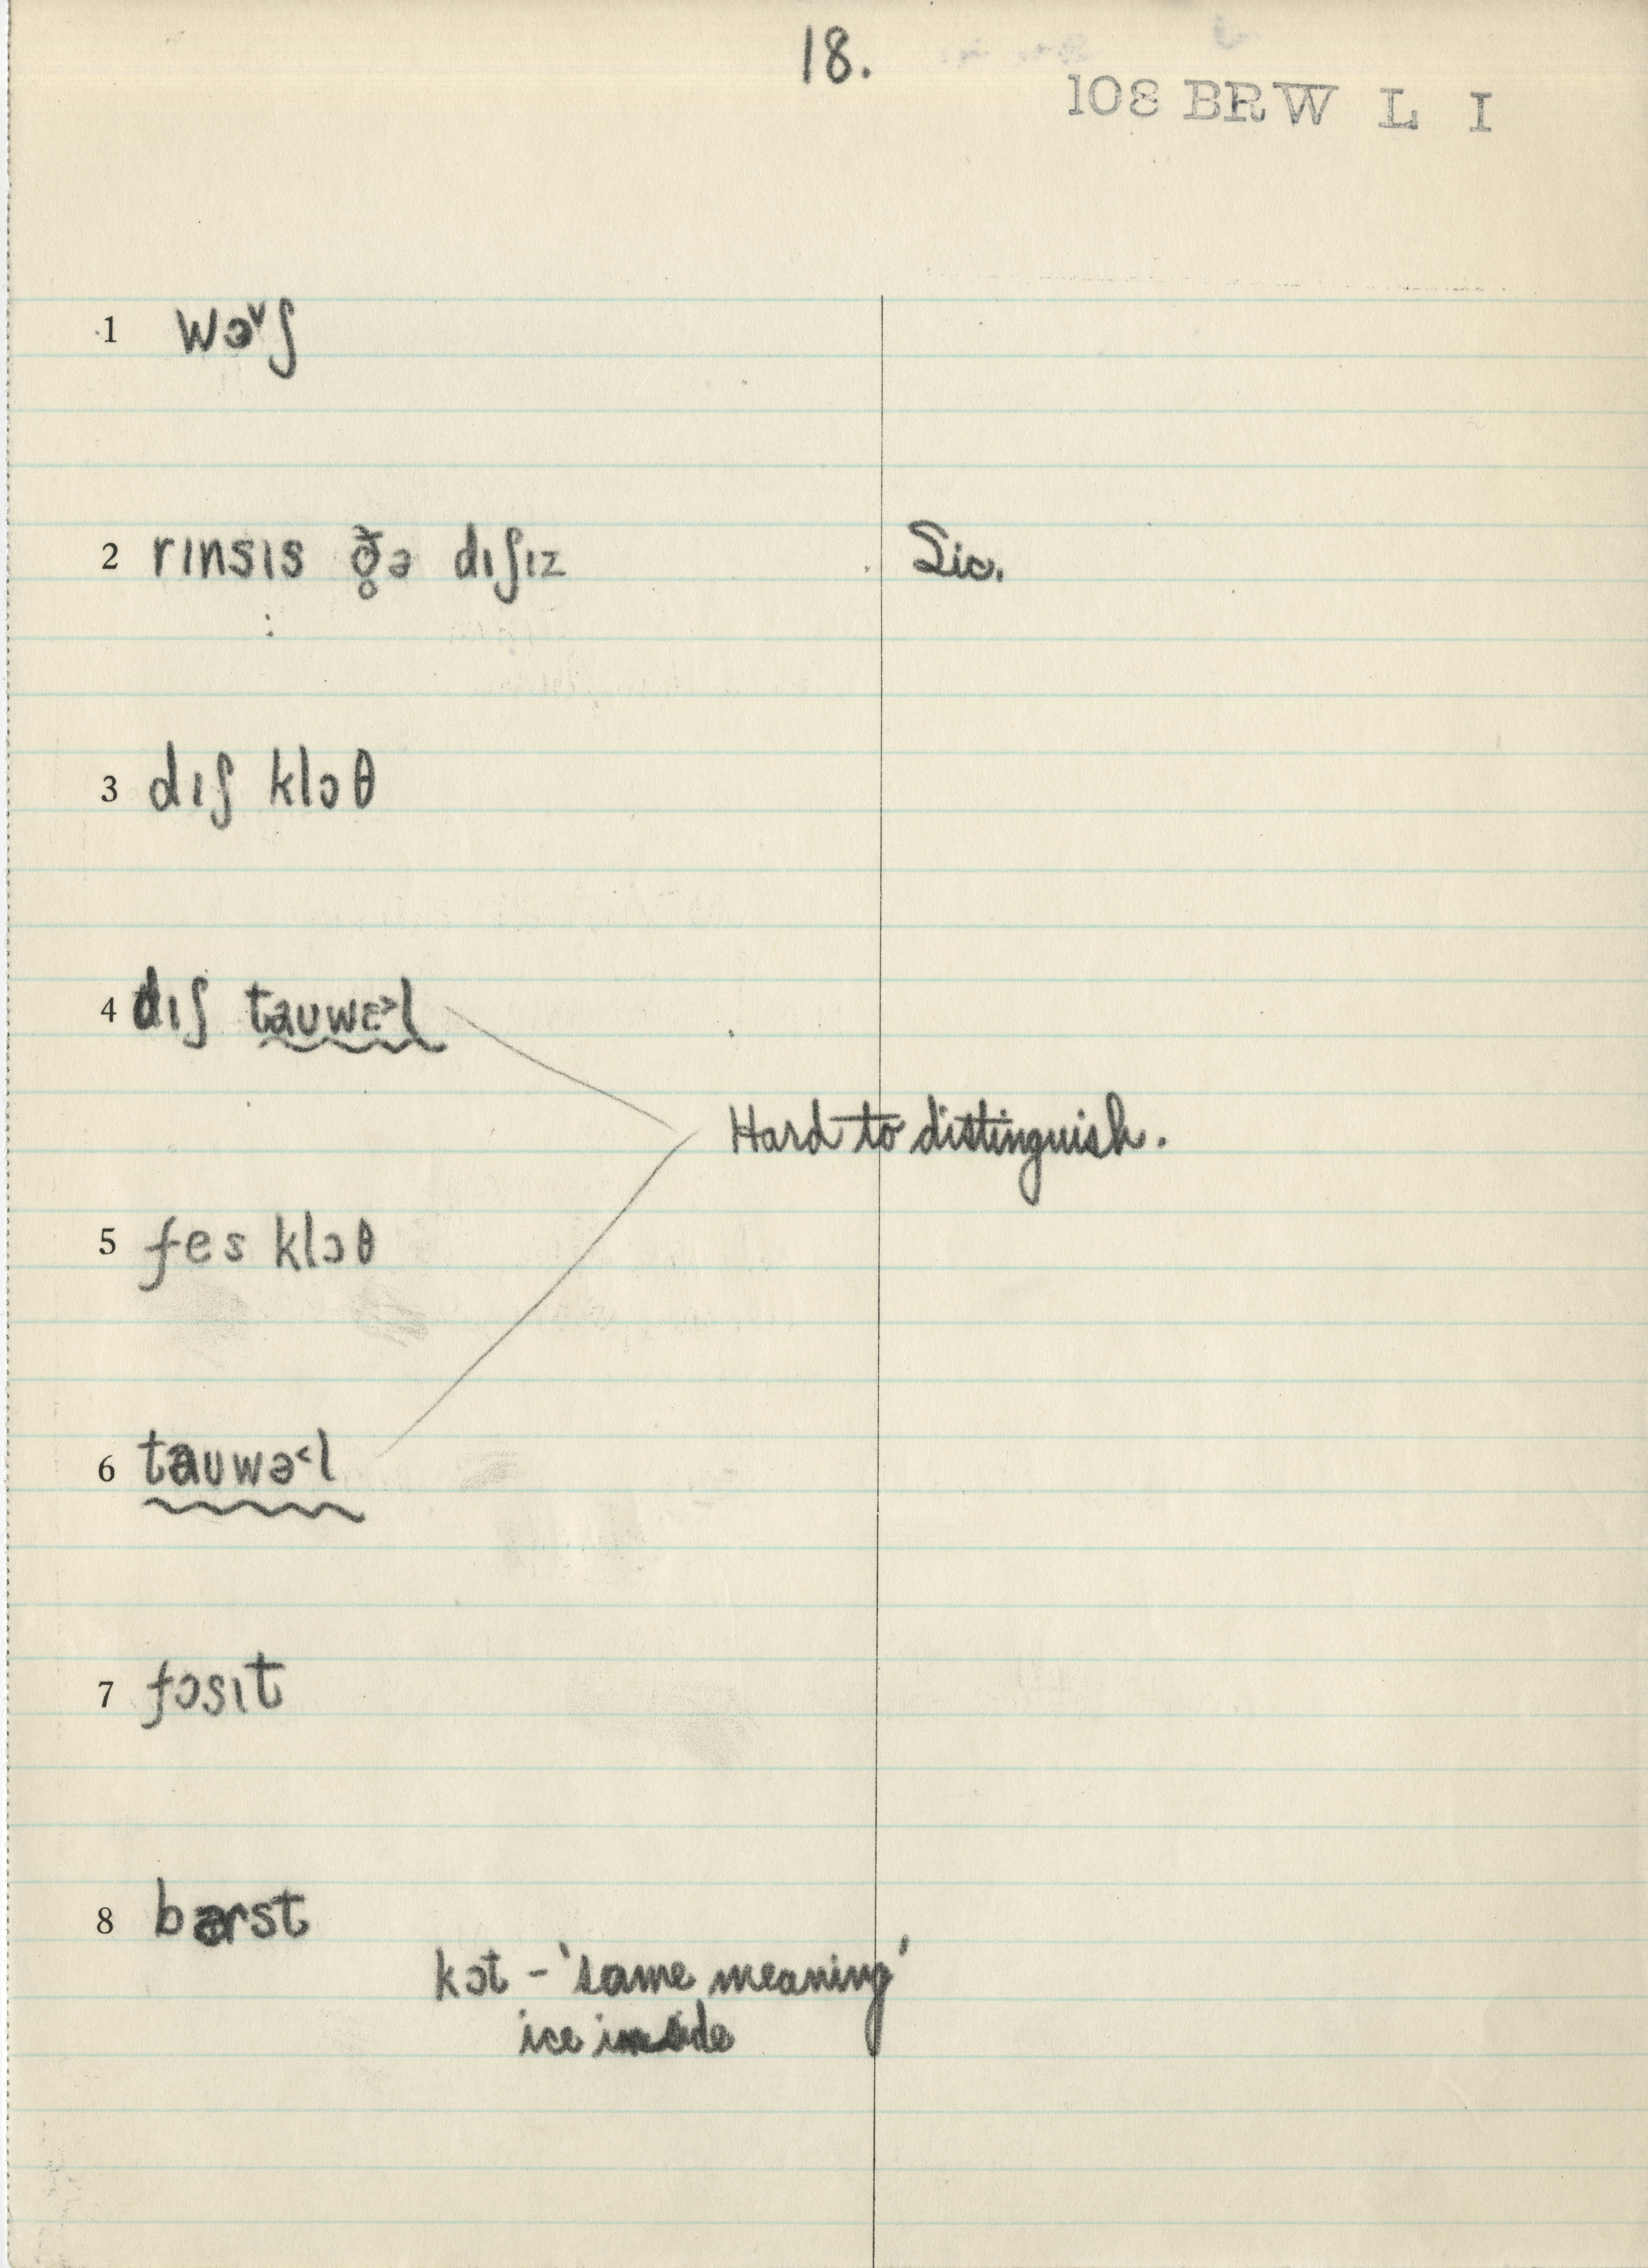 18.
108 BRW L I
1 wə˅ʃ
2 rɪnsɪs ð̥ə dɪʃɪz Sic.
3 dɪʃ klɔθ
4 dɪʃ tauwɛ˃l
Hard to distinguish.
5 fes klɔθ
6 tauwə˂l
7 fɔsɪt
8 bərst
kɔt – 'same meaning'
ice inside